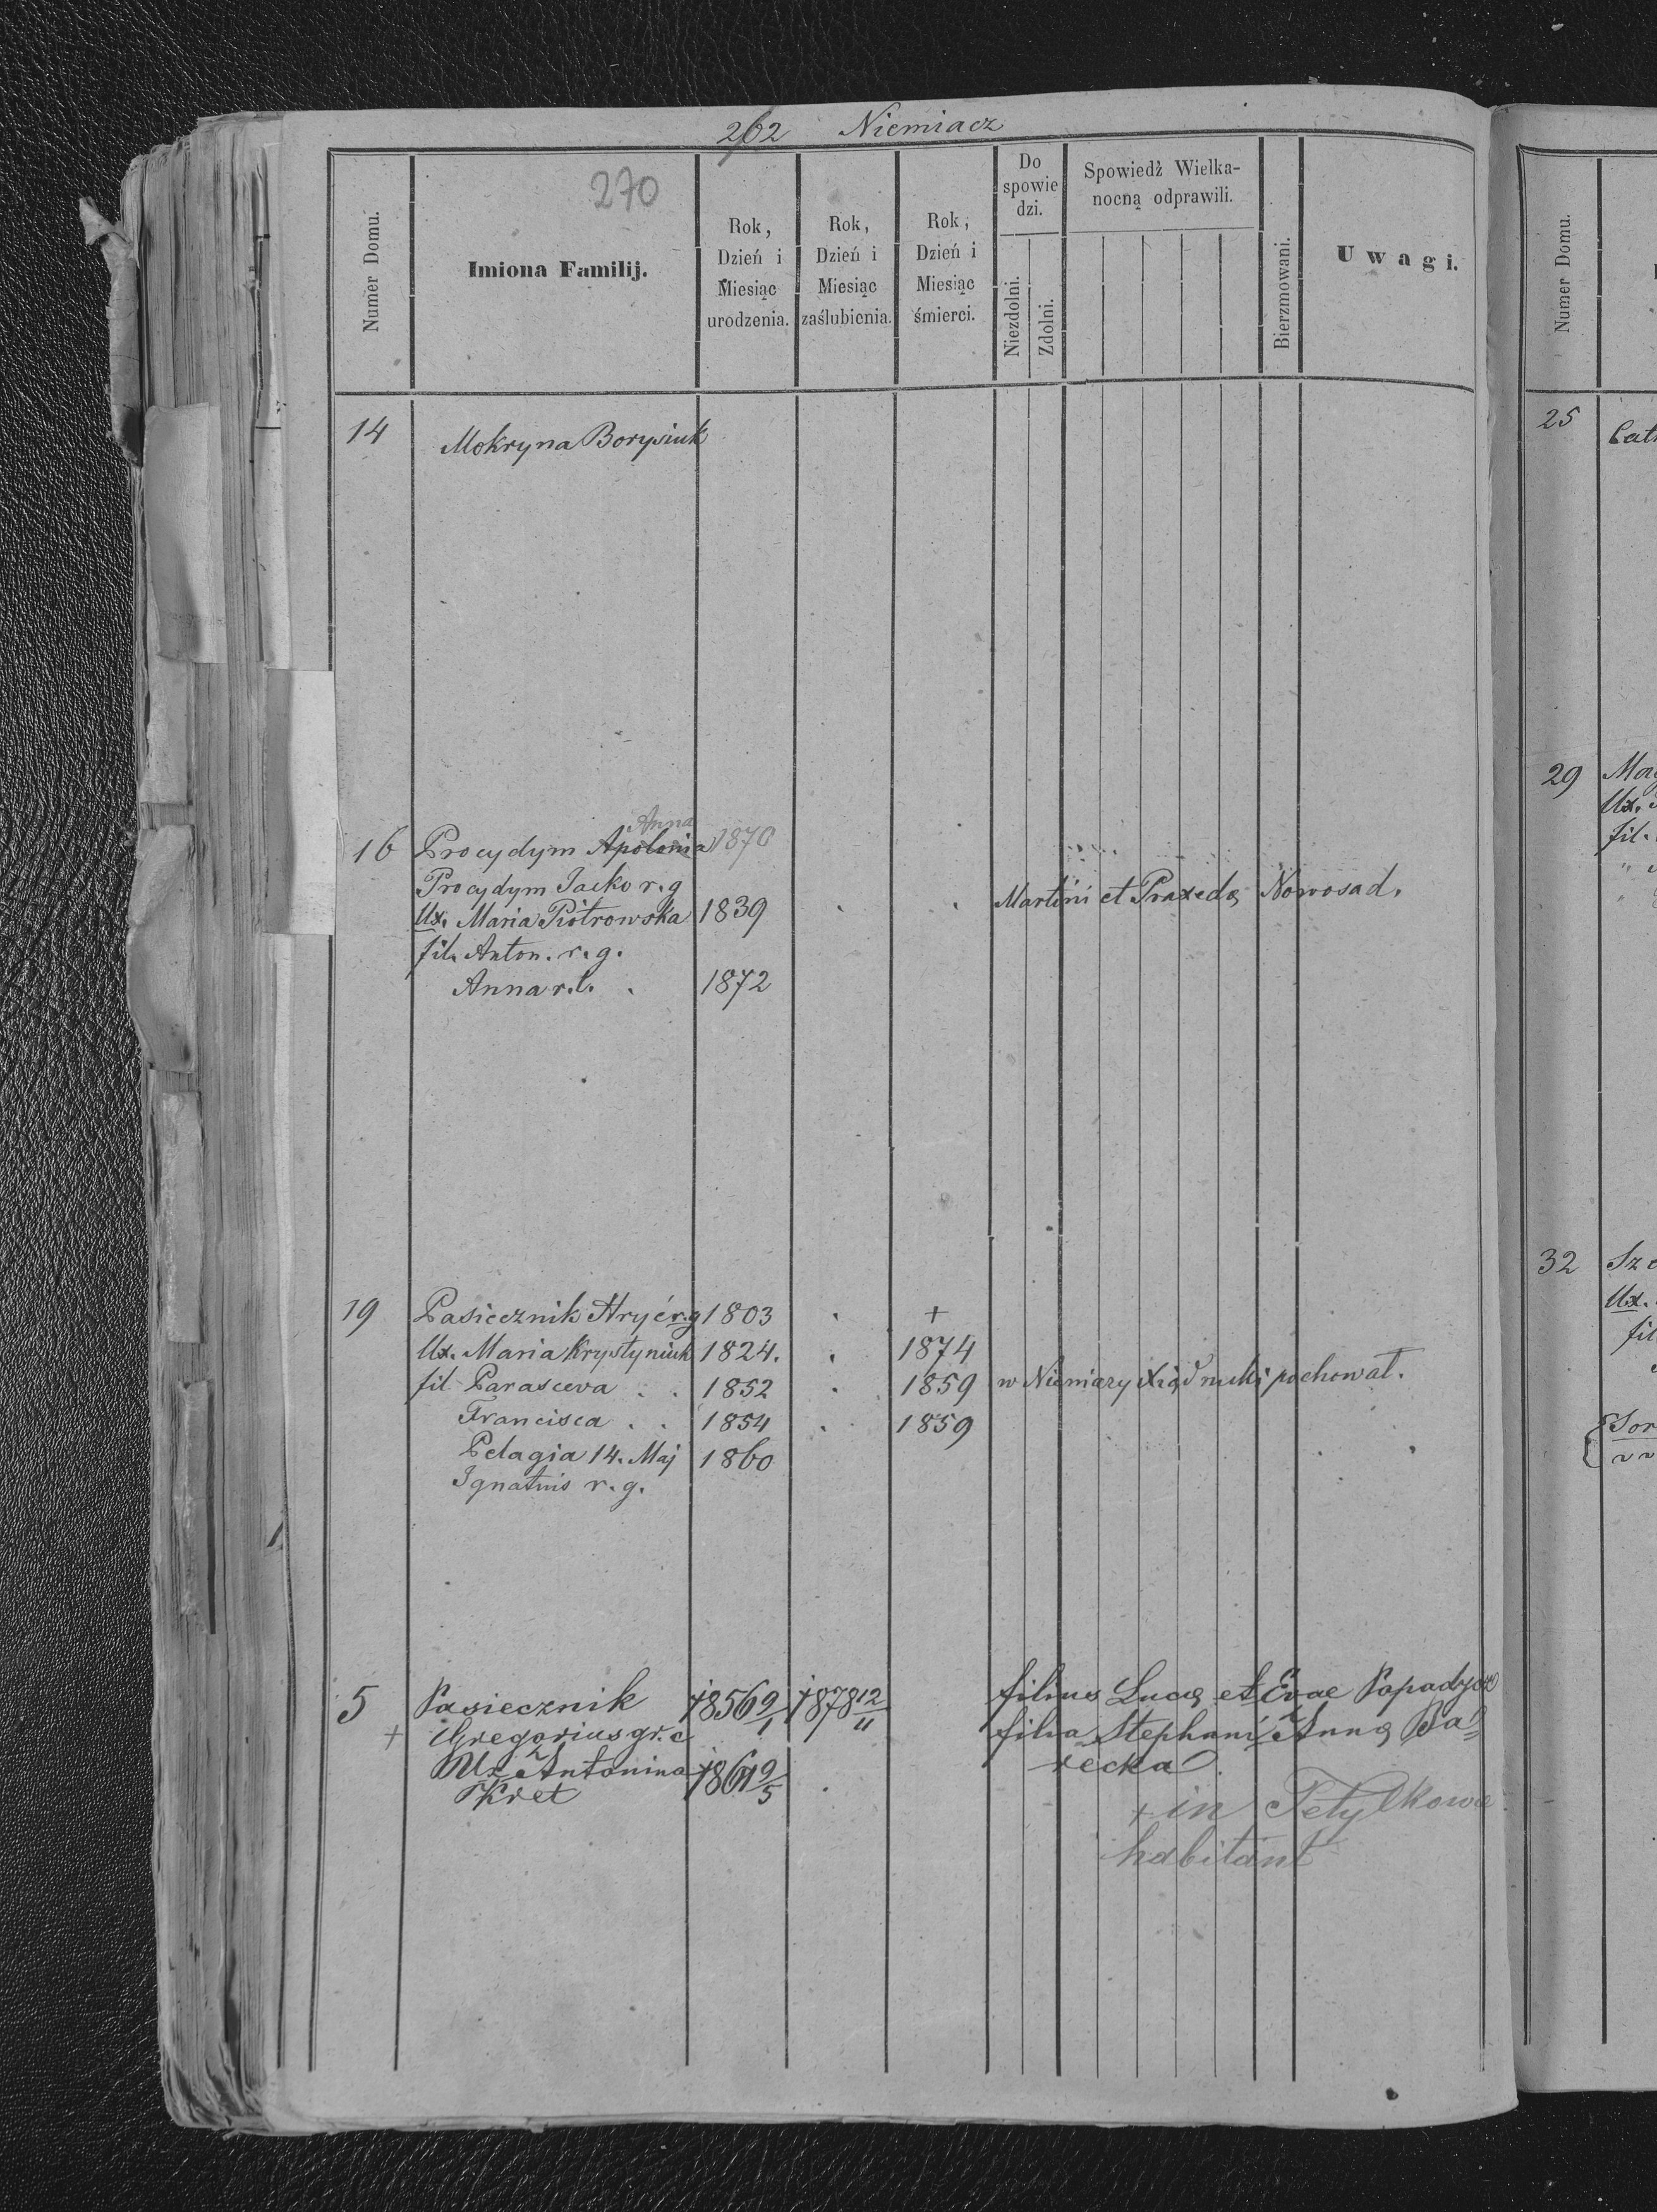 262 Niemiacz
270
Numer Domu.
Imiona Familij.
Rok, Dzień i Miesiąc urodzenia.
Rok, Dzień i Miesiąc zaślubienia.
Rok, Dzień i Miesiąc śmierci.
Do spowiedzi.
Niezdolni.
Zdolni.
Spowiedź Wielkanocną odprawili.
Bierzmowani.
Uwagi.
Numer Domu.
14 Mokryna Borysiuk
25
Anna
16 Procydym Apolonia 1870
Procydym Jacko r.g
Ux. Maria Piotrowska 1839 Martini et Praxeda Nowosad.
fil. Anton. r.g.
Anna r.l. 1872
29
Ux.
fil.
19 Pasiecznik Hryć r.g 1803 +
Ux. Maria Krystyniuk 1824. 1874
fil Parasceva 1852 1859 w pochował.
Francisca 1854 1859
Pelagia 14. Maj 1860
Ignatius r.g.
32
Ux.
fil
5 Pasiecznik 1856 9/1 1878 12/11 filius Lucą et Evae Papadycz
+ Gregorius gr.c filia Stephani Anną Ba=
Ux Antonina 1861 9/5 recka
Kret
+ in Petylkowce
habitant